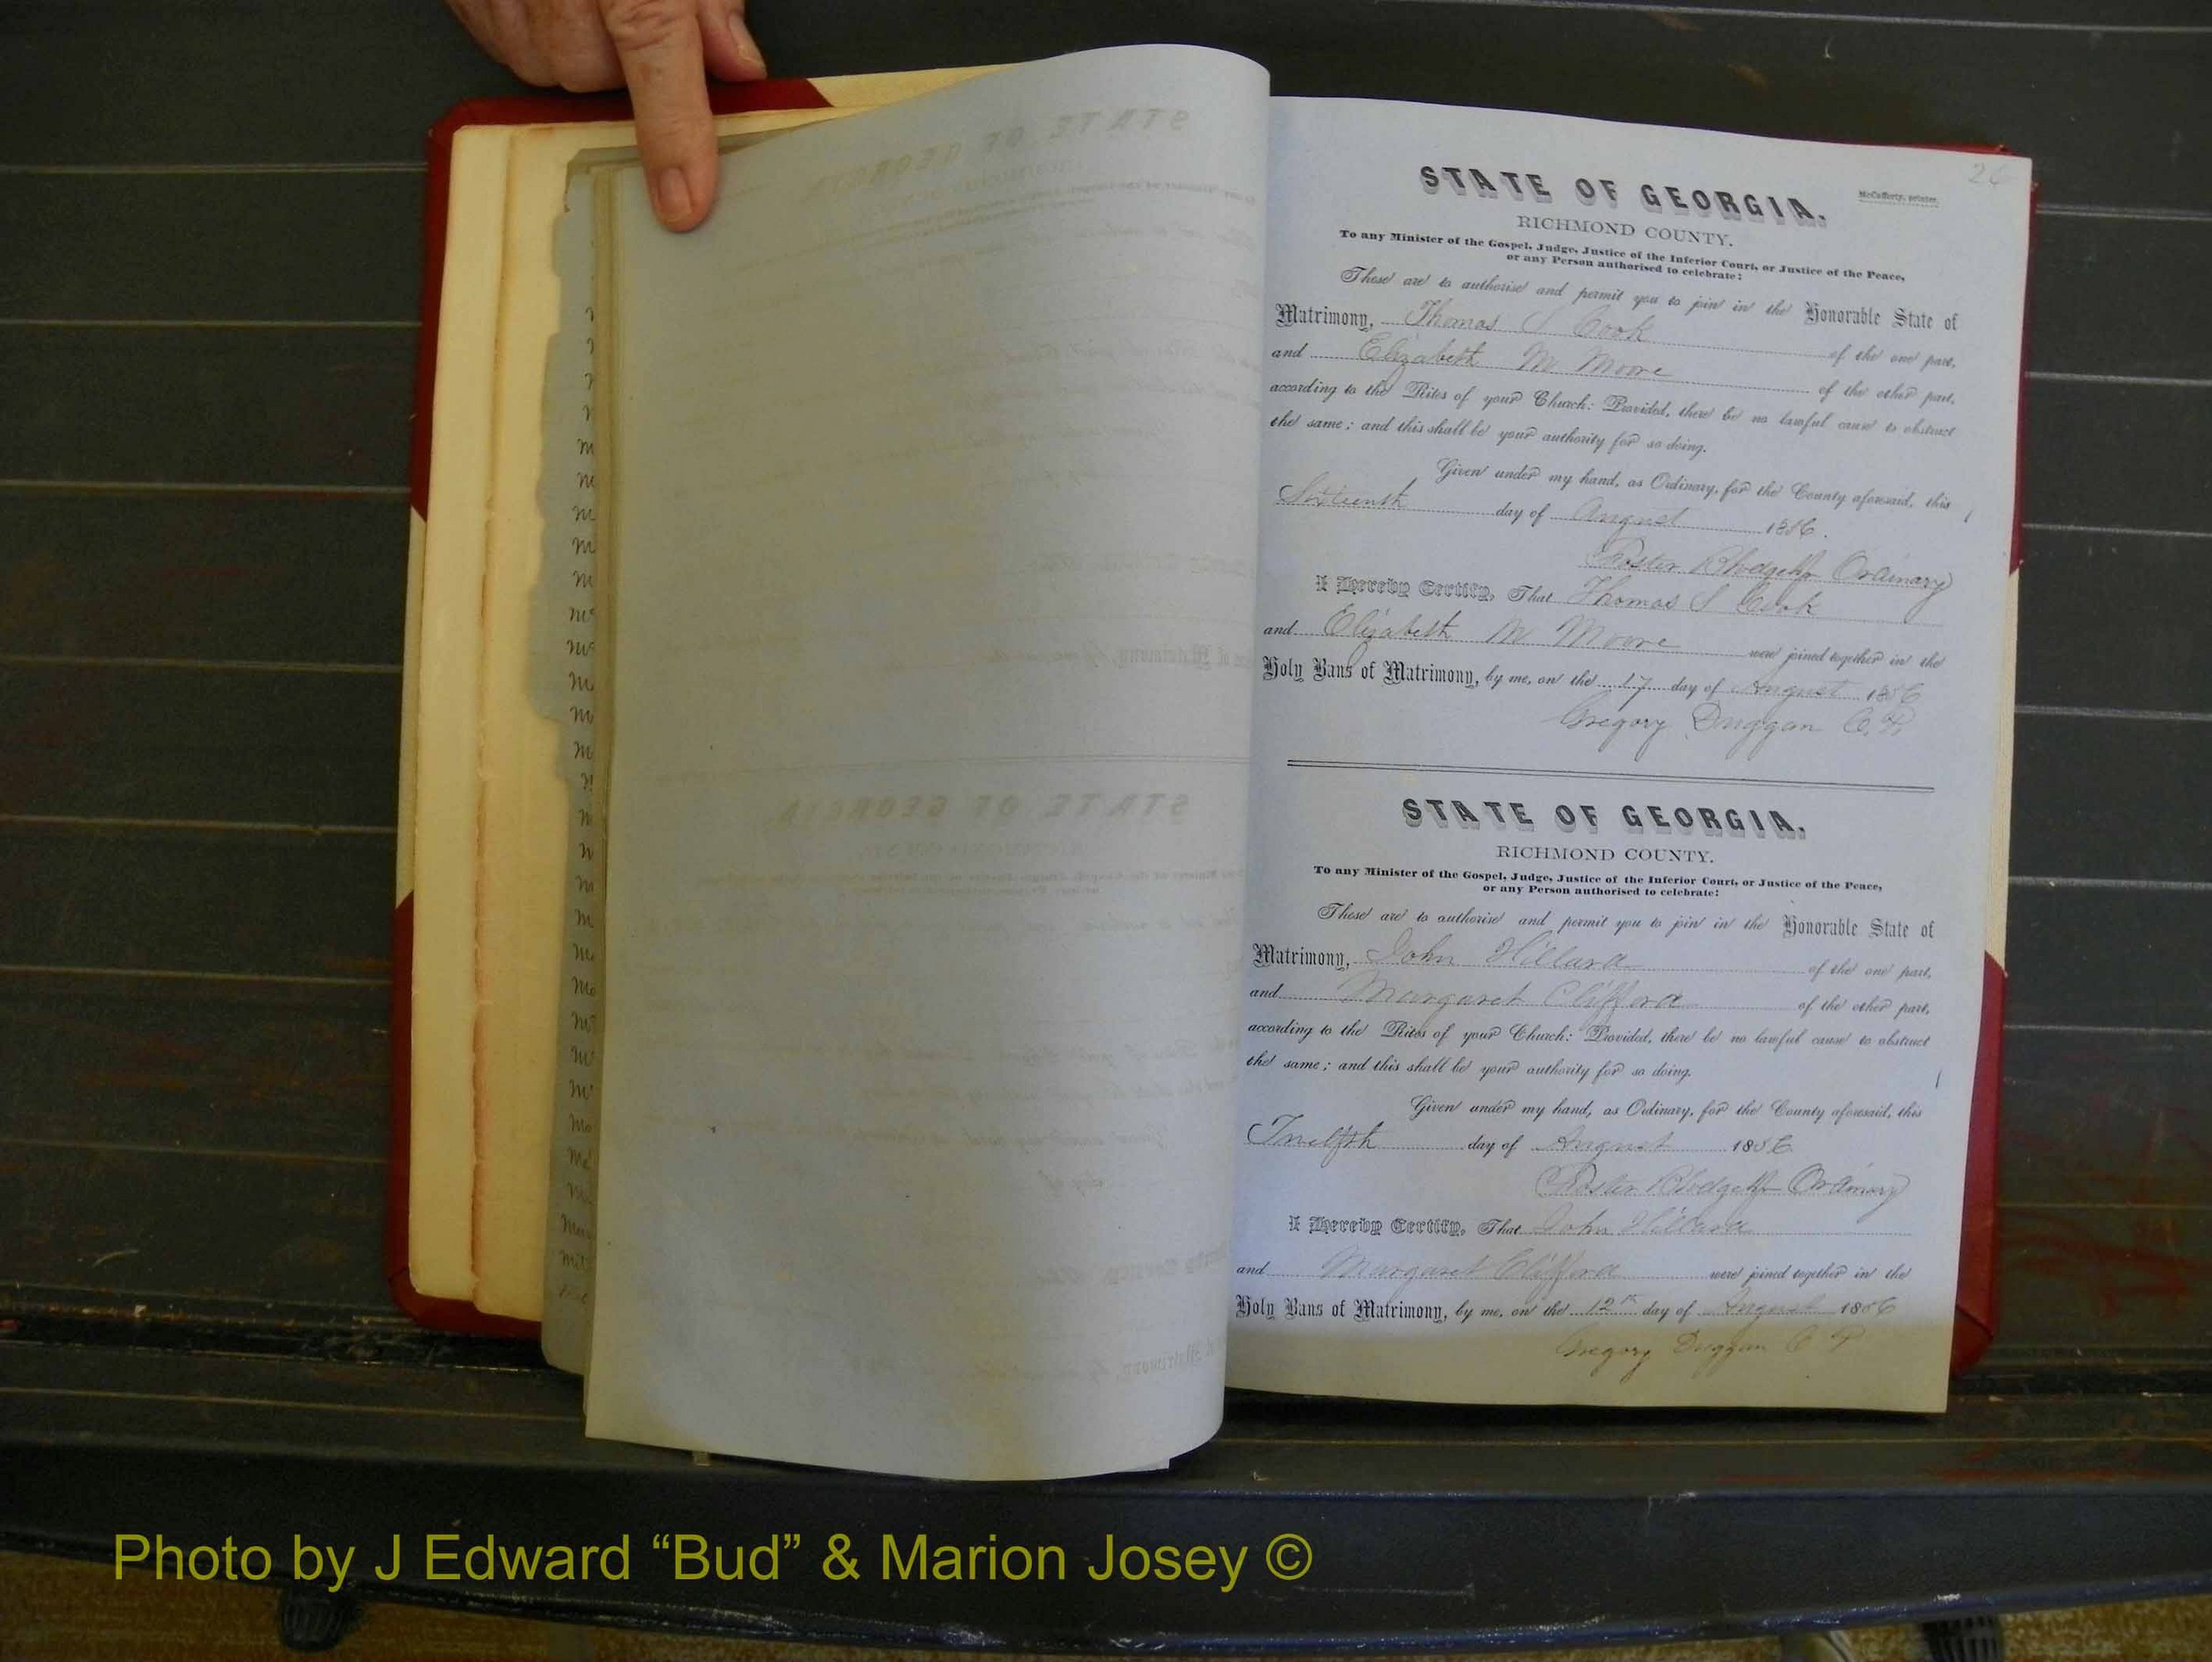 26
McCafferty, printer.
STATE OF GEORGIA.
RICHMOND COUNTY.
To any Minister of the Gospel, Judge, Justice of the Inferior Court, or Justice of the Peace,
or any Person authorised to celebrate:
These are to authorise and permit you to join in the Honorable State of
Matrimony, Thomas S Cook of the one part,
and Elizabeth M Moore of the other part,
according to the Rites of your Church: Provided, there be no lawful cause to obstruct
the same; and this shall be your authority for so doing.
Given under my hand, as Ordinary, for the County aforesaid, this
Sixteenth day of August 1856.
Foster Blodget Jr Ordinary
I Hereby Certify, That Thomas S Cook
and Elizabeth M Moore were joined together in the
Holy Bans of Matrimony, by me, on the 17 day of August 1856
Gregory Duggan C. P.
STATE OF GEORGIA.
RICHMOND COUNTY.
To any Minister of the Gospel, Judge, Justice of the Inferior Court, or Justice of the Peace,
or any Person authorised to celebrate:
These are to authorise and permit you to join in the Honorable State of
Matrimony, John Hillard of the one part,
and Margaret Clifford of the other part,
according to the Rites of your Church: Provided, there be no lawful cause to obstruct
the same; and this shall be your authority for so doing.
Given under my hand, as Ordinary, for the County aforesaid, this
Twelfth day of August 1856
Foster Blodget Jr Ordinary
I Hereby Certify, That John Hillard
and Margaret Clifford were joined together in the
Holy Bans of Matrimony, by me, on the 12th day of August 1856
Gregory Duggan C P
Photo by J Edward “Bud” & Marion Josey ©